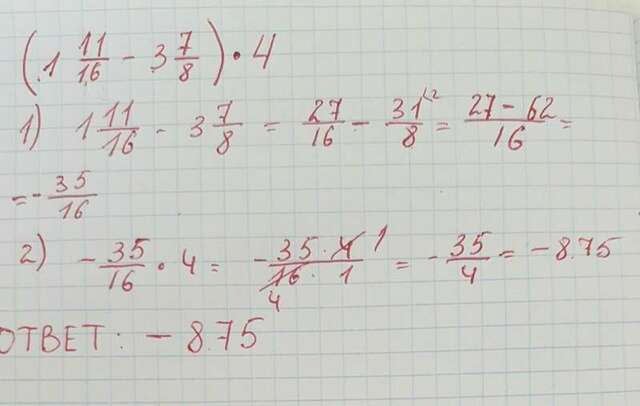 (1 11/16 - 3 7/8) · 4
1) 1 11/16 - 3 7/8 = 27/16 - 31/8 (2 = 27 - 62/16 =
= - 35/16
2) - 35/16 · 4 = - 35 · 4 1/16 · 1 4 = - 35/4 = - 8.75
ОТВЕТ: - 8.75